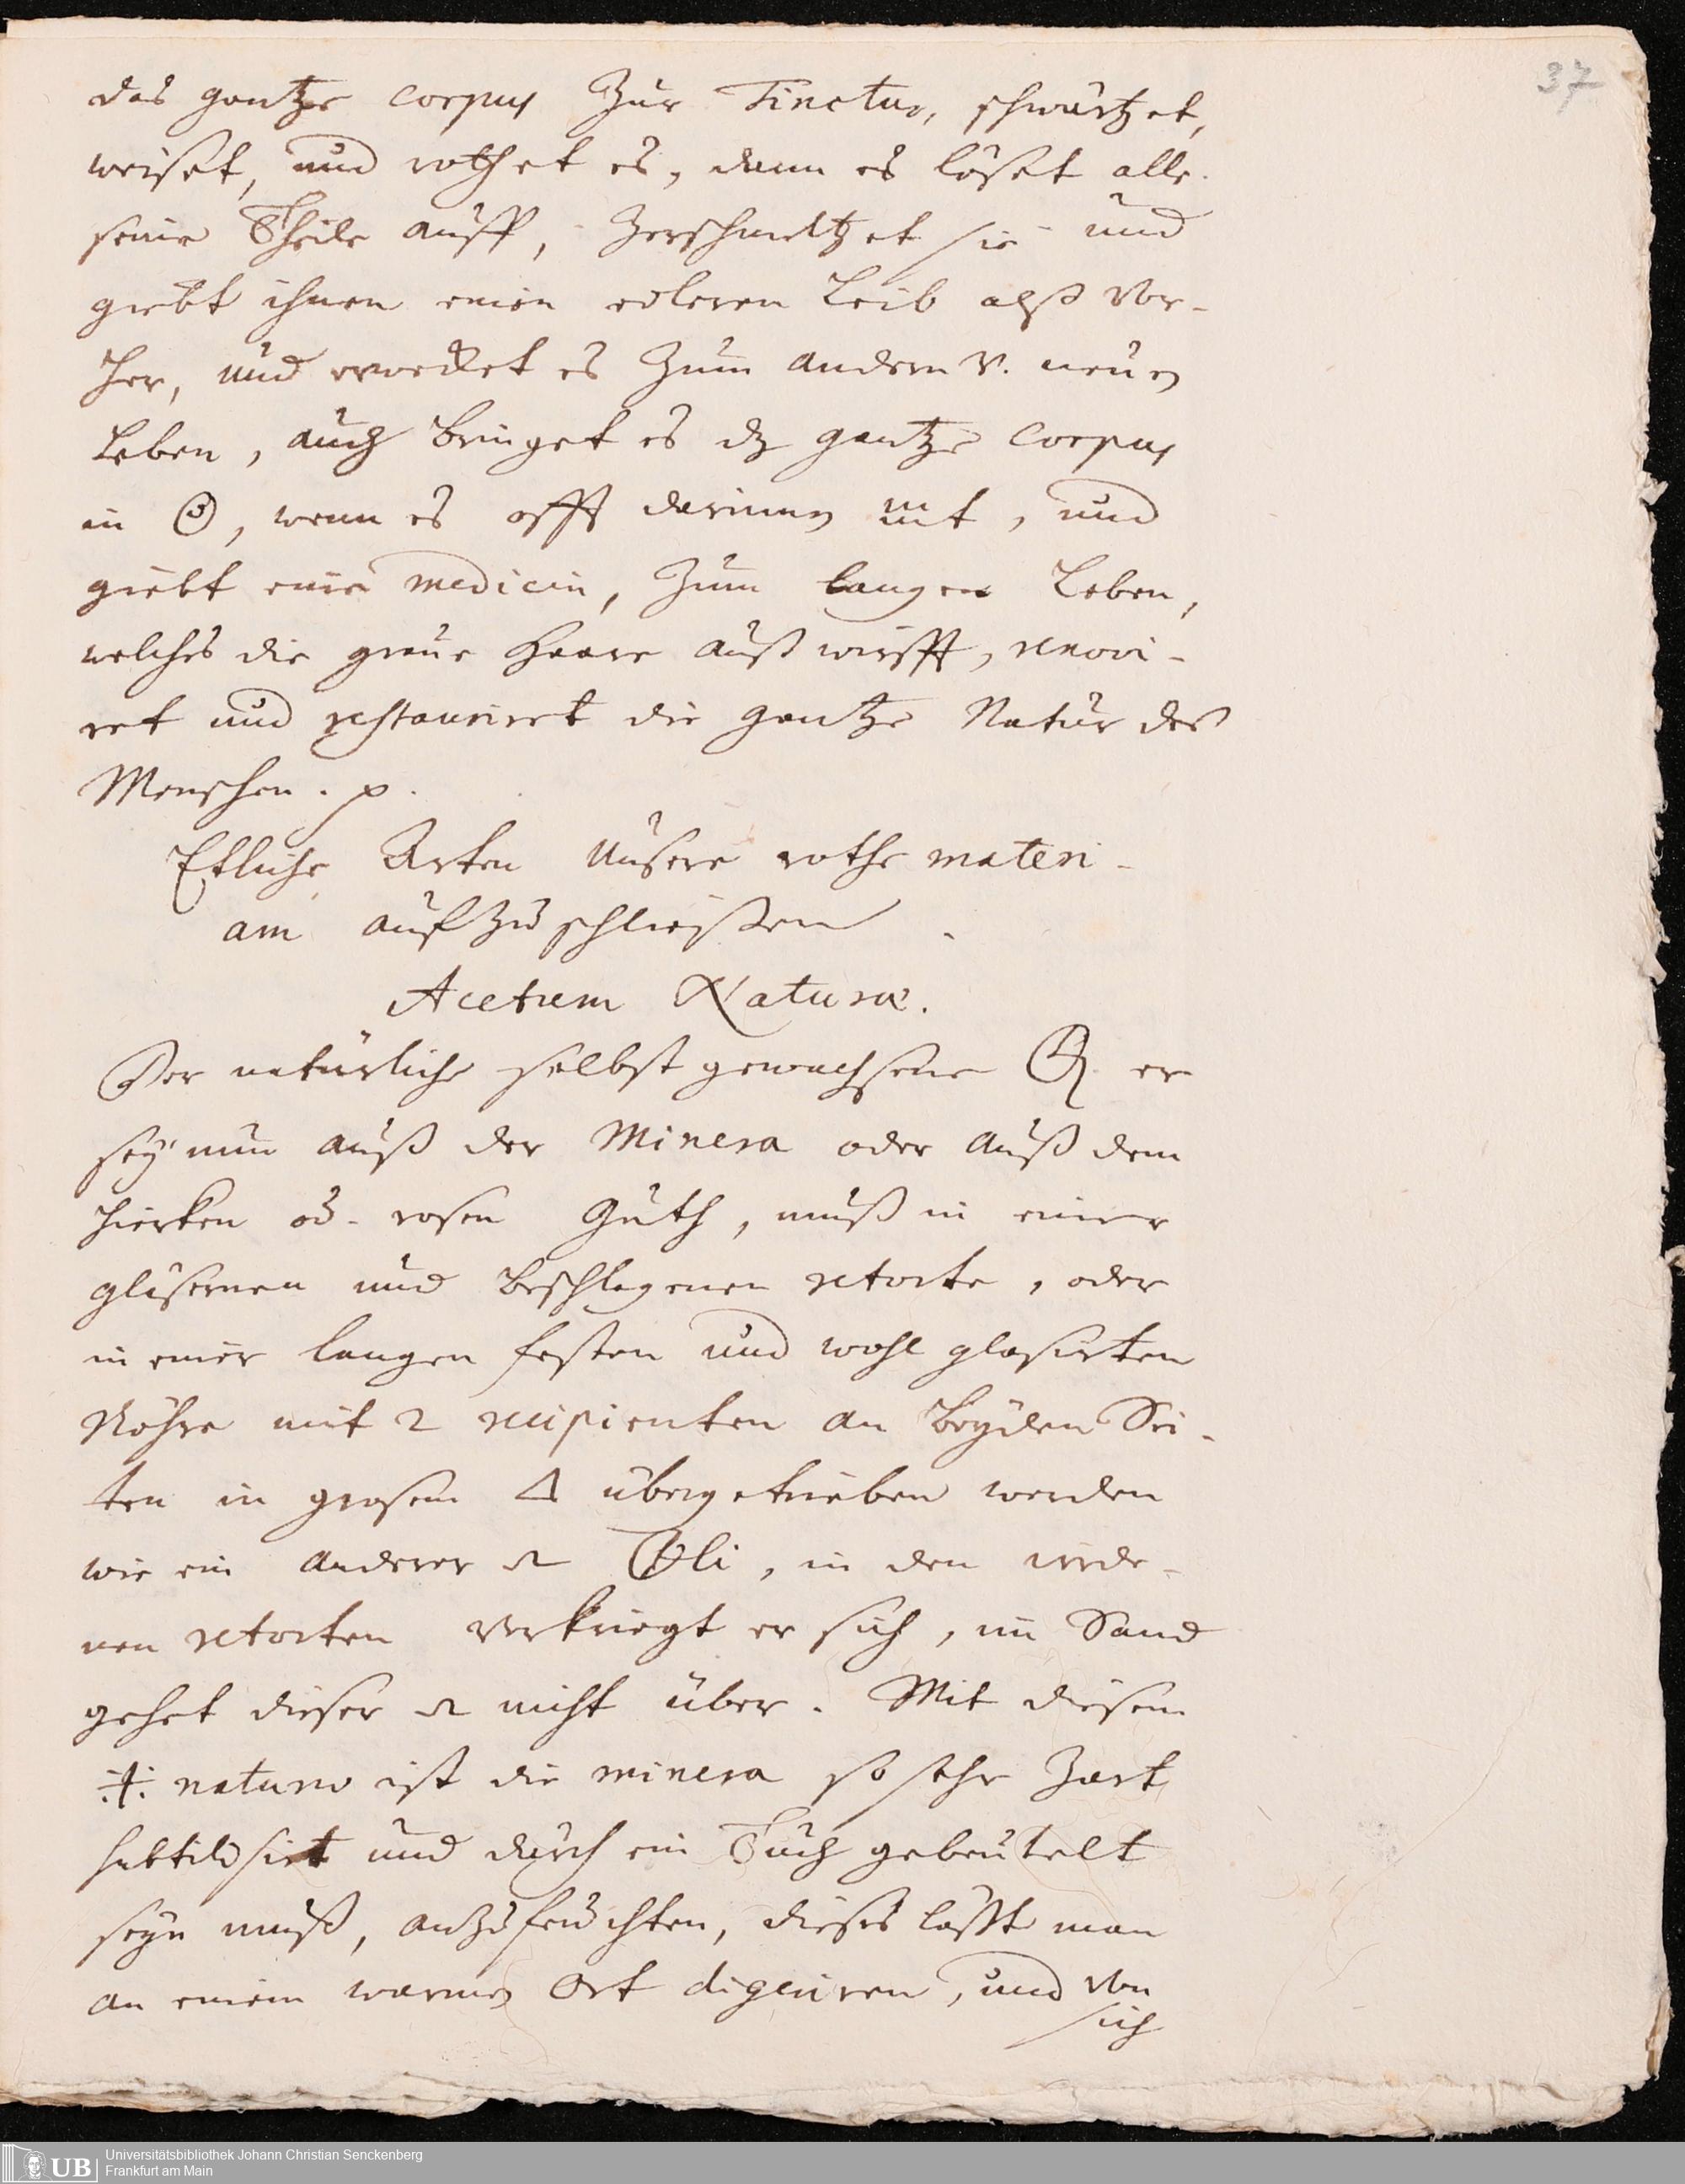 37
das gantze Corpus zur Tinctur, schwärtzet,
weiset, und röthet es, dann es löset alle
seine Theile auff, zerschmeltzet sie und
giebt ihnen einen edleren Leib alß vor-
her, und erwecket es zum andern v. neuen
Leben, auch bringet es dz gantze Corpus
in ☉, wenn es offt darinnen , und
giebt eine medicin, zum langen Leben,
welches die graue Haare außwirfft, renovi-
ret und restauriret die gantze Natur des
Menschen. p.
Etliche Arten unsere rothe materi-
am aufzuschließen.
Acetum Naturæ.
Der natürliche selbst gewachsene er
sey nun auß der Minera oder auß dem
od. rosen Guth, muß in einer
gläsernen und beschlagenen retorte, oder
in einer langen festen und wohl glasirten
Röhre mit 2 recipienten an beyden Sei-
ten in grosem 🜂 übergetrieben werden
wie ein anderer li, in den irrde-
nen retorten verkriegt er sich, im Sand
gehet dieser nicht über. Mit diesem
🜊 naturæ ist die minera so sehr zart
subtilisirt und durch ein Tuch gebeutelt
seyn muß, anzufeuchten, dieses läßt man
an einem warmen Ort digeriren, und von
sich
UB
Universitätsbibliothek Johann Christian Senckenberg
Frankfurt am Main